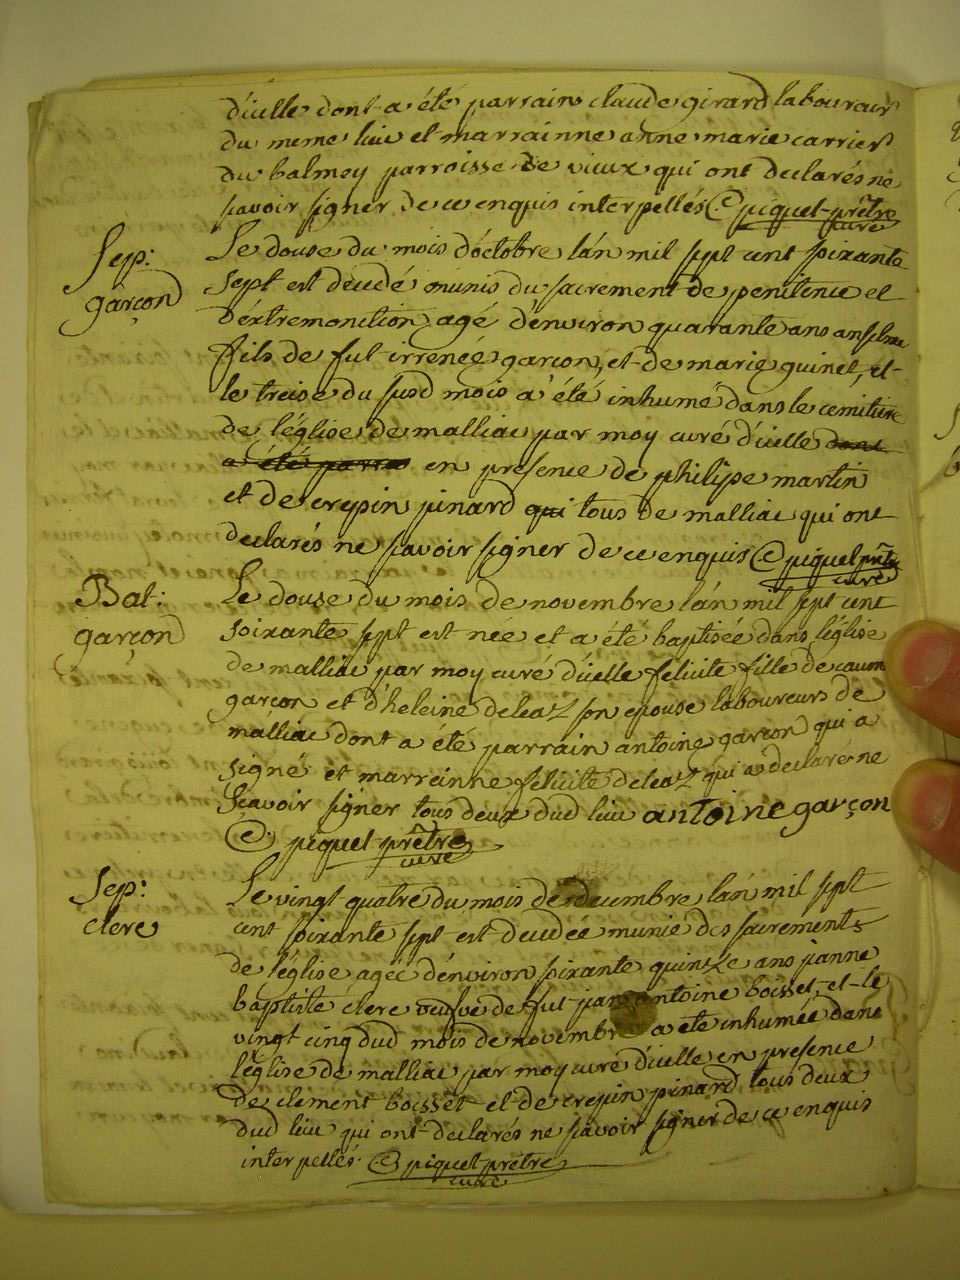 d'icelle dont a été parrain claude girard laboureur
du meme lieu et marrainne anne marie carrier
du balmey parroisse de vieux qui ont declarés ne
scavoir signer de ce enquis interpellés piquet prêtre
curé
Sep:
garçon
Le douse du mois d'octobre l'an mil sept cent soixante
sept est décédé munis du sacrement de penitence et
d'extremonction, agé d'environ quarante ans anselme
fils de fut irrenée garçon, et de marie guinet, et
le treise du susd mois a été inhumé dans le cemitiere
de l'église de malliac par moy curé d'icelle dont
a été parrain en presence de philipe martin
et de crepin pinard qui tous de malliac qui ont
declarés ne scavoir signer de ce enquis piquet prêtre
curé
Bat:
garçon
Le douse du mois de novembre l'an mil sept cent
soixante sept est née et a été baptisée dans l'église
de malliac par moy curé d'icelle felicité fille de
garçon et d'heleine deleaz son epouse laboureurs de
malliac dont a été parrain antoine garçon qui a
signé et marreinne felicité deleaz qui a declaré ne
scavoir signer tous deux dud lieu antoine garçon
piquet prêtre
curé
Sep:
clere
Le vingt quatre du mois de decembre l'an mil sept
cent soixante sept est decedée munie des sacrements
de l'église agée d'environ soixante quinze ans janne
baptiste clere veufve de fut jan antoine boisset, et le
vingt cinq dud mois de novembre a été inhumée dans
l'église de malliac par moy curé d'icelle en presence
de clement boisset et de crepin pinard tous deux
dud lieu qui ont declarés ne scavoir signer de ce enquis
interpellés. piquet prêtre
curé